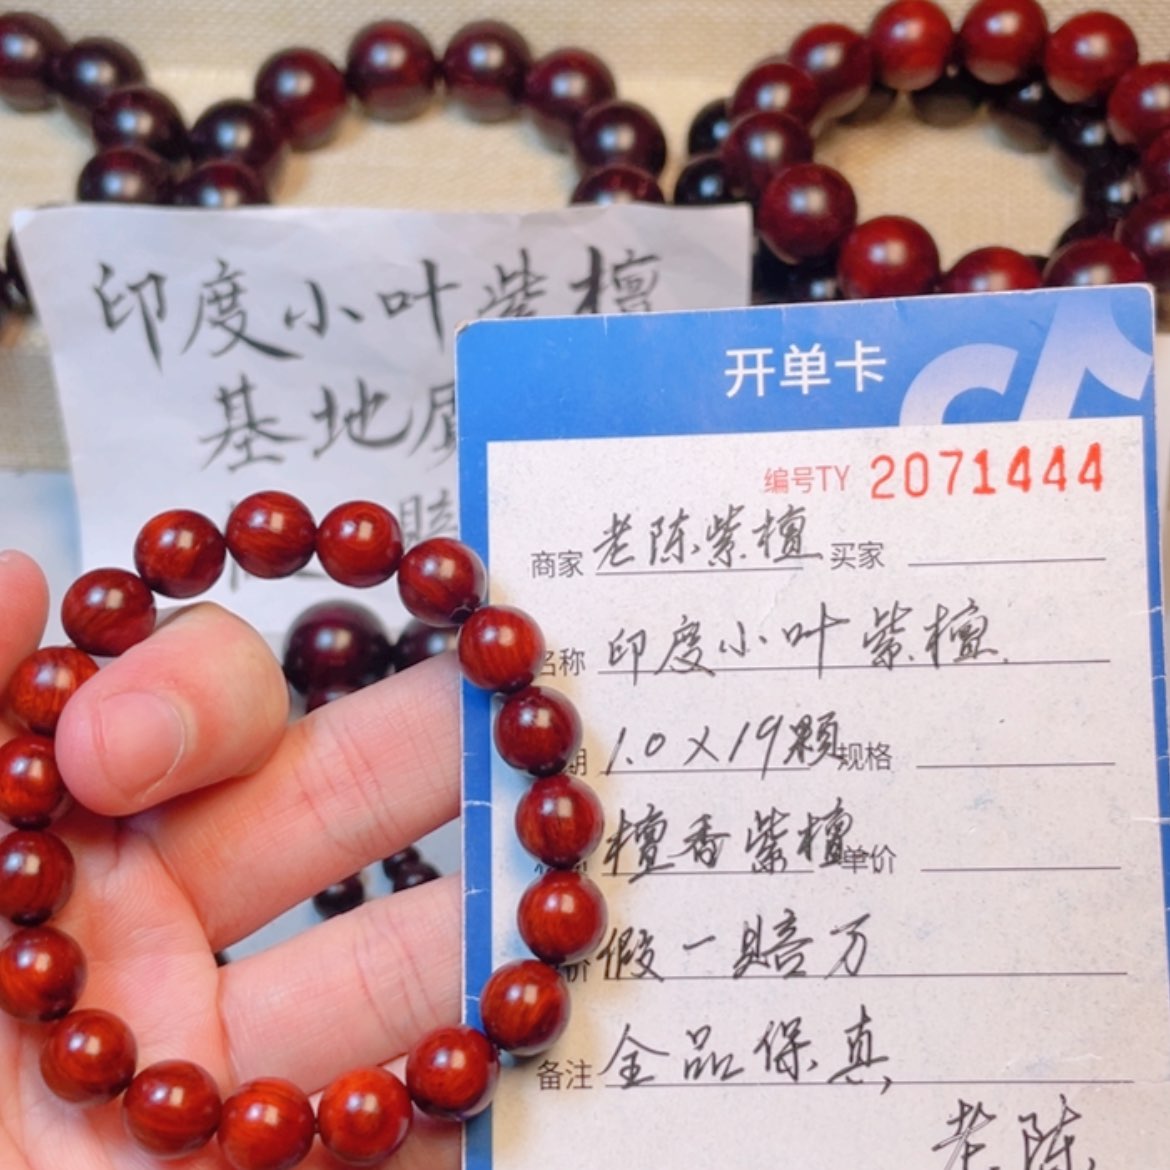 印度小叶紫檀
基地
賠
开单卡
编号TY 2071444
商家 老陈紫檀 买家
名称 印度小叶紫檀
期 1.0×19颗 规格
檀香紫檀 单价
价 假一赔万
备注 全品保真
老陈